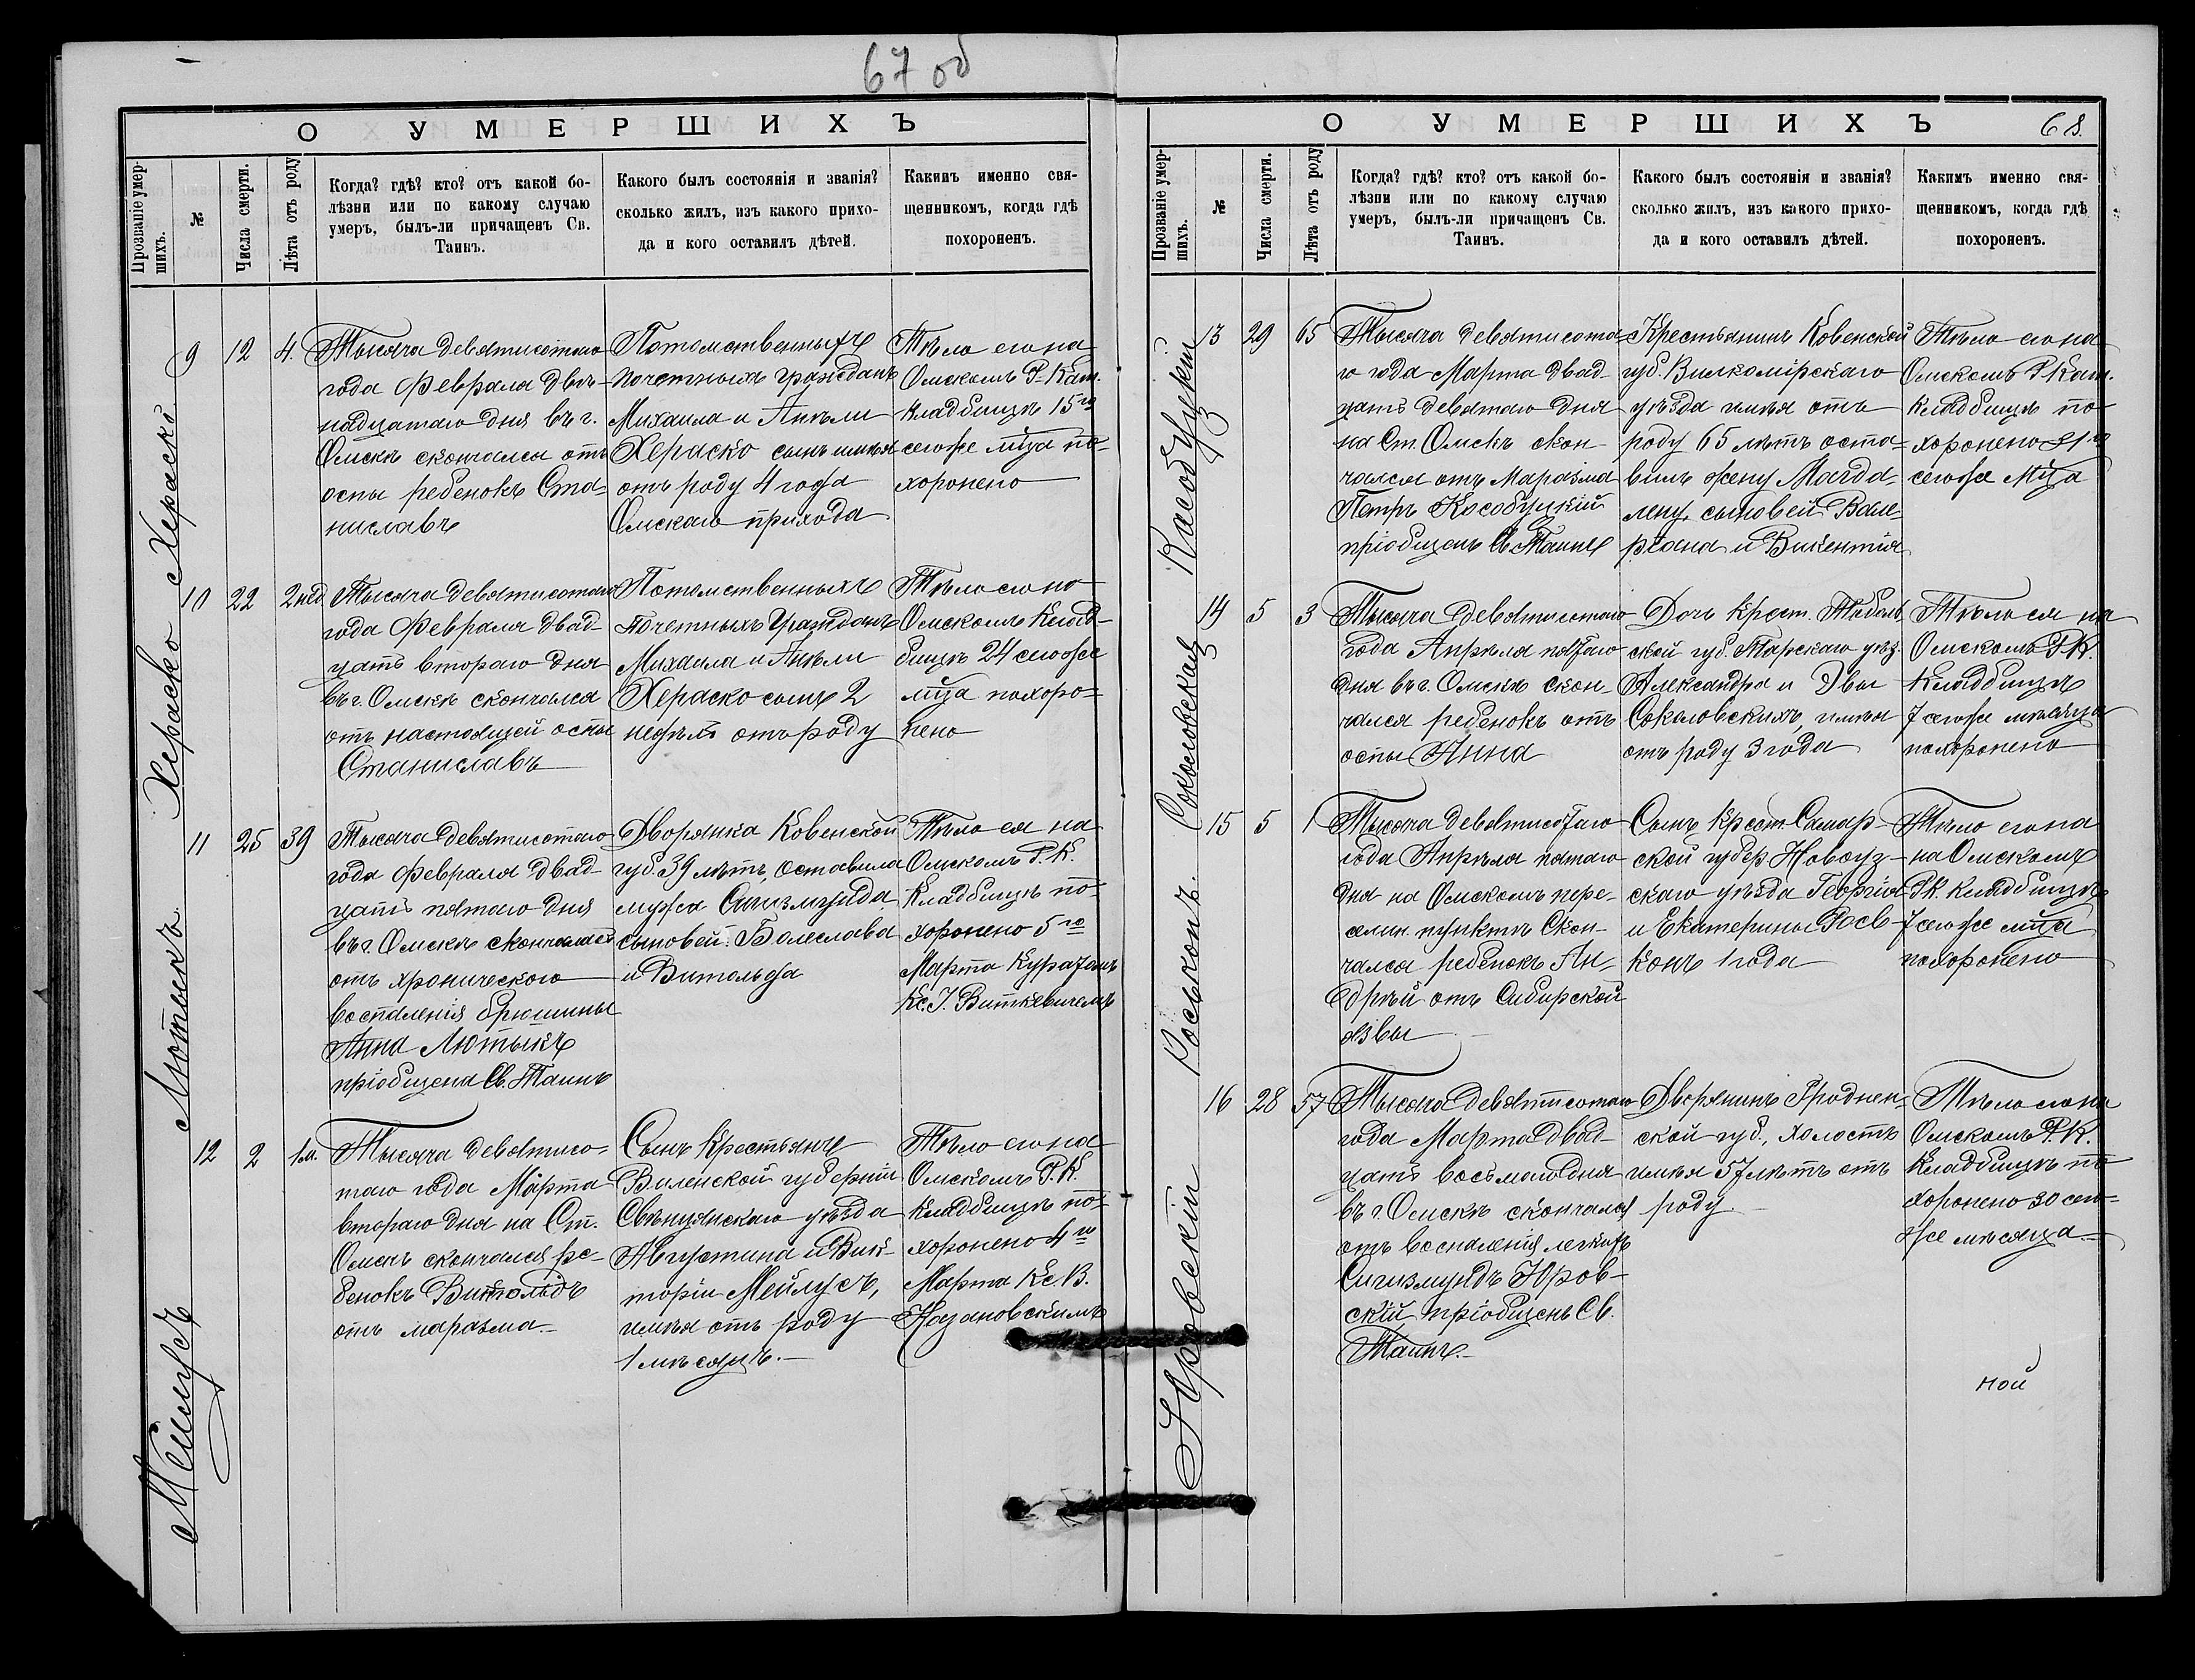 67 об
О УМЕРШИХЪ
Прозваніе умер-
шихъ.
№
Числа смерти.
Лѣта отъ роду
Когда? гдѣ? кто? отъ какой бо-
лѣзни или по какому случаю
умеръ, былъ-ли причащенъ Св.
Таинъ.
Какого былъ состоянія и званія?
сколько жилъ, изъ какого прихо-
да и кого оставилъ дѣтей.
Какимъ именно свя-
щенникомъ, когда гдѣ
похороненъ.
Хераско
9
12
4.
Тысяча девятисотаго
года Февраля двѣ-
надцатаго дня въ г.
Омскѣ скончался отъ
оспы ребенокъ Ста-
ниславъ
Потомственныхъ
почетныхъ гражданъ
Михаила и Анѣли
Хераско сынъ имѣя
отъ роду 4 года
Омскаго прихода
Тѣло его на
Омскомъ Р-Кат.
кладбищѣ 15го
сегоже мца по-
хоронено
Хераско
10
22
2 нед
Тысяча девятисотаго
года Февраля двад-
цать втораго дня
въ г. Омскѣ скончался
отъ настоящей оспы
Станиславъ
Потомственныхъ
Почетныхъ Гражданъ
Михаила и Анѣли
Хераско сынъ 2
недѣль отъ роду
Тѣло его на
Омскомъ Клад-
бищѣ 24 сегоже
мца похоро-
нено
Лютыкъ
11
25
39
Тысяча девятисотаго
года Февраля двад-
цать пятаго дня
въ г. Омскѣ скончалась
отъ хроническаго
воспаленія брюшины
Анна Лютыкъ
пріобщена Св. Таинъ
Дворянка Ковенской
губ. 39 лѣтъ, оставила
мужа Сигизмунда
сыновей: Болеслава
и Витольда
Тѣло ея на
Омскомъ Р.К.
Кладбищѣ по-
хоронено 5го
Марта Куратомъ
Кс. І. Виткевичемъ
Мейлусъ
12
2
1 м.
Тысяча девятисо-
таго года Марта
втораго дня на Ст.
Омскъ скончался ре-
бенокъ Витольдъ
отъ маразма.
Сынъ Крестьянъ
Виленской губерніи
Свѣнцянскаго уѣзда
Августина и Вик-
торіи Мейлусъ,
имѣя отъ роду
1 мѣсяцъ.
Тѣло его на
Омскомъ Р.К.
кладбищѣ по-
хоронено 4го
Марта Кс. В.
68.
О УМЕРШИХЪ
Прозваніе умер-
шихъ.
№
Числа смерти.
Лѣта отъ роду
Когда? гдѣ? кто? отъ какой бо-
лѣзни или по какому случаю
умеръ, былъ-ли причащенъ Св.
Таинъ.
Какого былъ состоянія и званія?
сколько жилъ, изъ какого прихо-
да и кого оставилъ дѣтей.
Какимъ именно свя-
щенникомъ, когда гдѣ
похороненъ.
Касобуцкій
13
29
65
Тысяча девятисота-
го года Марта двад-
цать девятаго дня
на Ст. Омскъ скон-
чался отъ маразма
Петръ Кособуцкій
пріобщенъ Св. Таинъ
Крестьянинъ Ковенской
губ. Вилкомірскаго
уѣзда имѣя отъ
роду 65 лѣтъ оста-
вилъ жену Магда-
лену, сыновей Вале-
ріана и Викентія
Тѣло его на
Омскомъ Р. Кат.
кладбищѣ по-
хоронено 31го
сегоже мца
Соколовская
14
5
3
Тысяча девятисотаго
года Апрѣля пятаго
дня въ г. Омскѣ скон-
чался ребенокъ отъ
оспы Анна
Дочь Крест. Тобол
ской губ. Тарскаго уѣз.
Александра и Эвы
Соколовскихъ, имѣя
отъ роду 3 года
Тѣло ея на
Омскомъ Р.К.
Кладбищѣ
7 сегоже мѣсяца
похоронено
Роськонъ.
15
5
1
Тысяча девятисотаго
года Апрѣля пятаго
дня на Омскомъ пере-
селин. пунктѣ скон-
чался ребенокъ Ан-
дрѣй отъ Сибирской
язвы
Сынъ Крест. Самар-
ской губер. Новоуз-
скаго уѣзда Георгія
и Екатерины Рось-
конъ 1 года
Тѣло его на
на Омскомъ
Р.К. кладбищѣ
7 сегоже мца
похоронено
Юровскій
16
28
57
Тысяча девятисотаго
года Марта двад-
цать восьмаго дня
въ г. Омскѣ скончался
отъ воспаленія легкихъ
Сигизмундъ Юров-
скій, пріобщенъ Св.
Таинъ.
Дворянинъ Гроднен-
ской губ., холостъ
имѣя 57 лѣтъ отъ
роду.
Тѣло его на
Омскомъ Р.К.
Кладбищѣ по-
хоронено 30 сего-
же мѣсяца.
ной